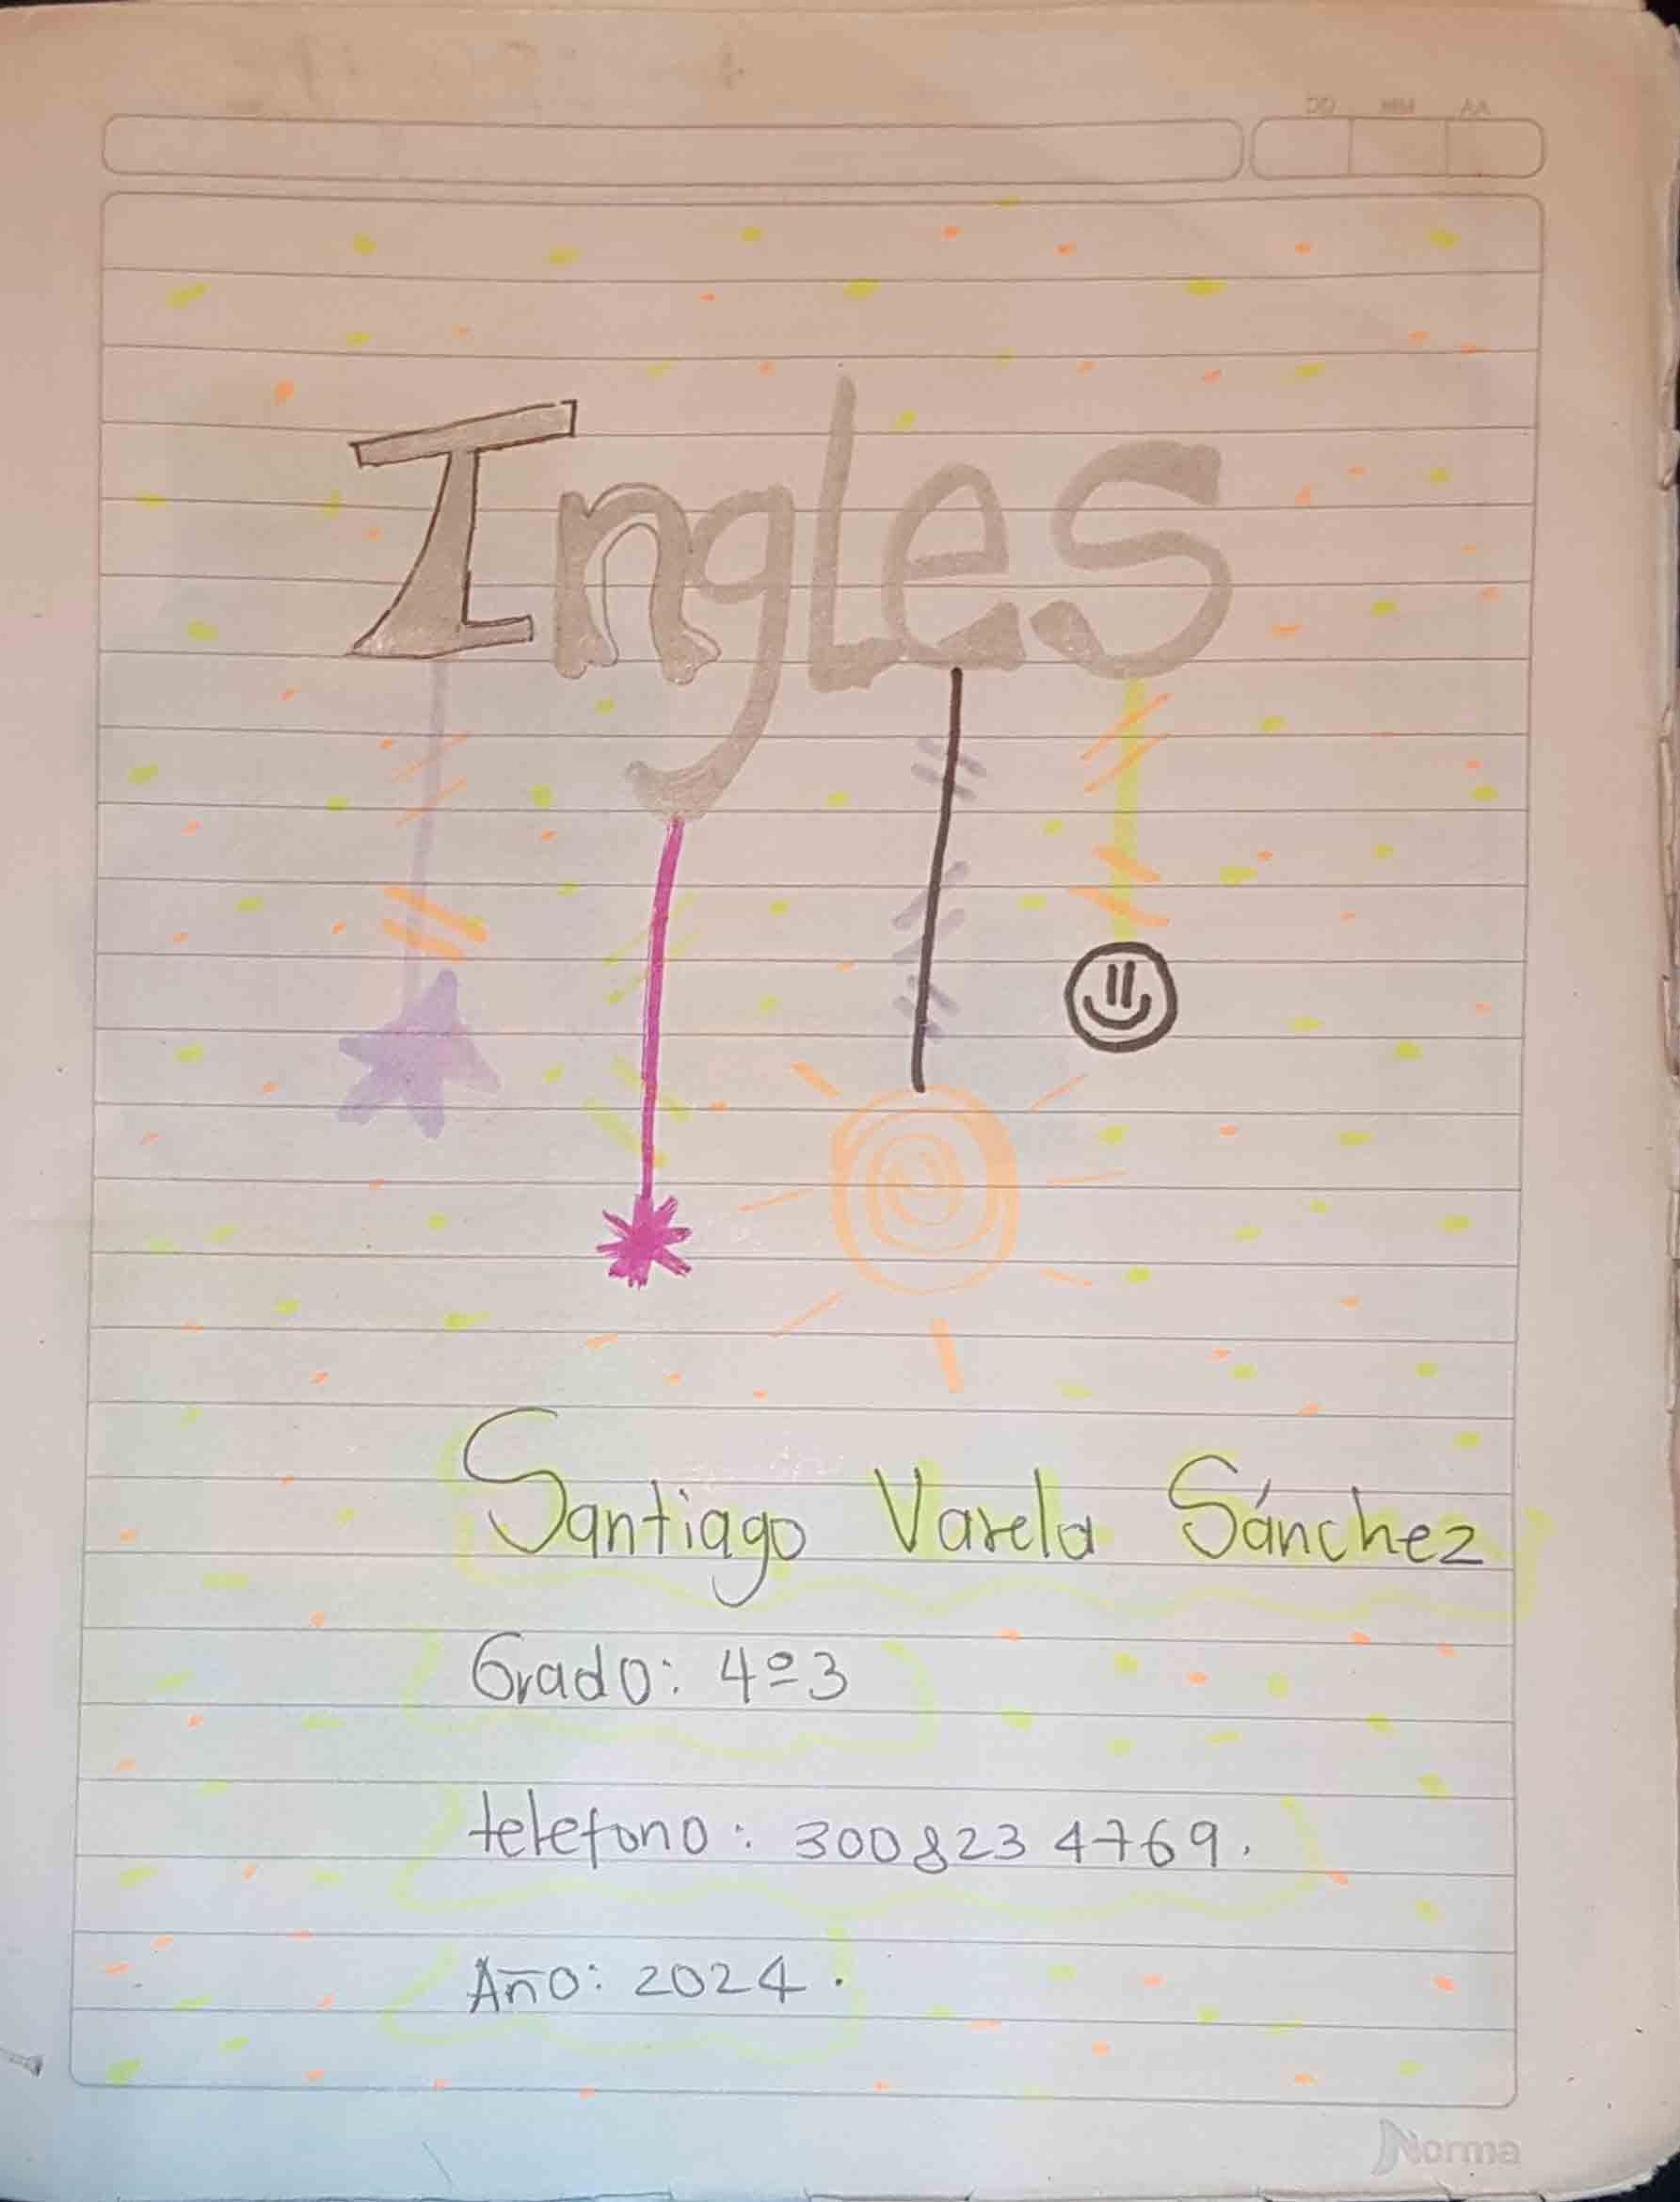 DD MM AA
Ingles
Santiago Varela Sánchez
Grado: 4º3
telefono: 300823 4769.
Año: 2024.
Norma